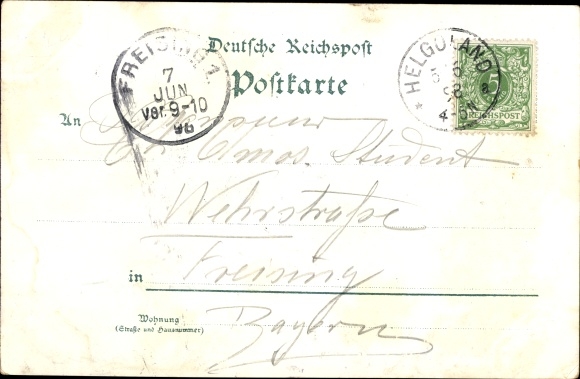 Deutsche Reichspost
Postkarte
FREISING 1.
7
JUN
Vor. 9-10
96
* HELGOLAND
6
96 a
4-5N
5
REICHSPOST
An
Monsieur
Amos. Student
Wehrstraße
in Freising
Bayern
Wohnung
(Straße und Hausnummer)